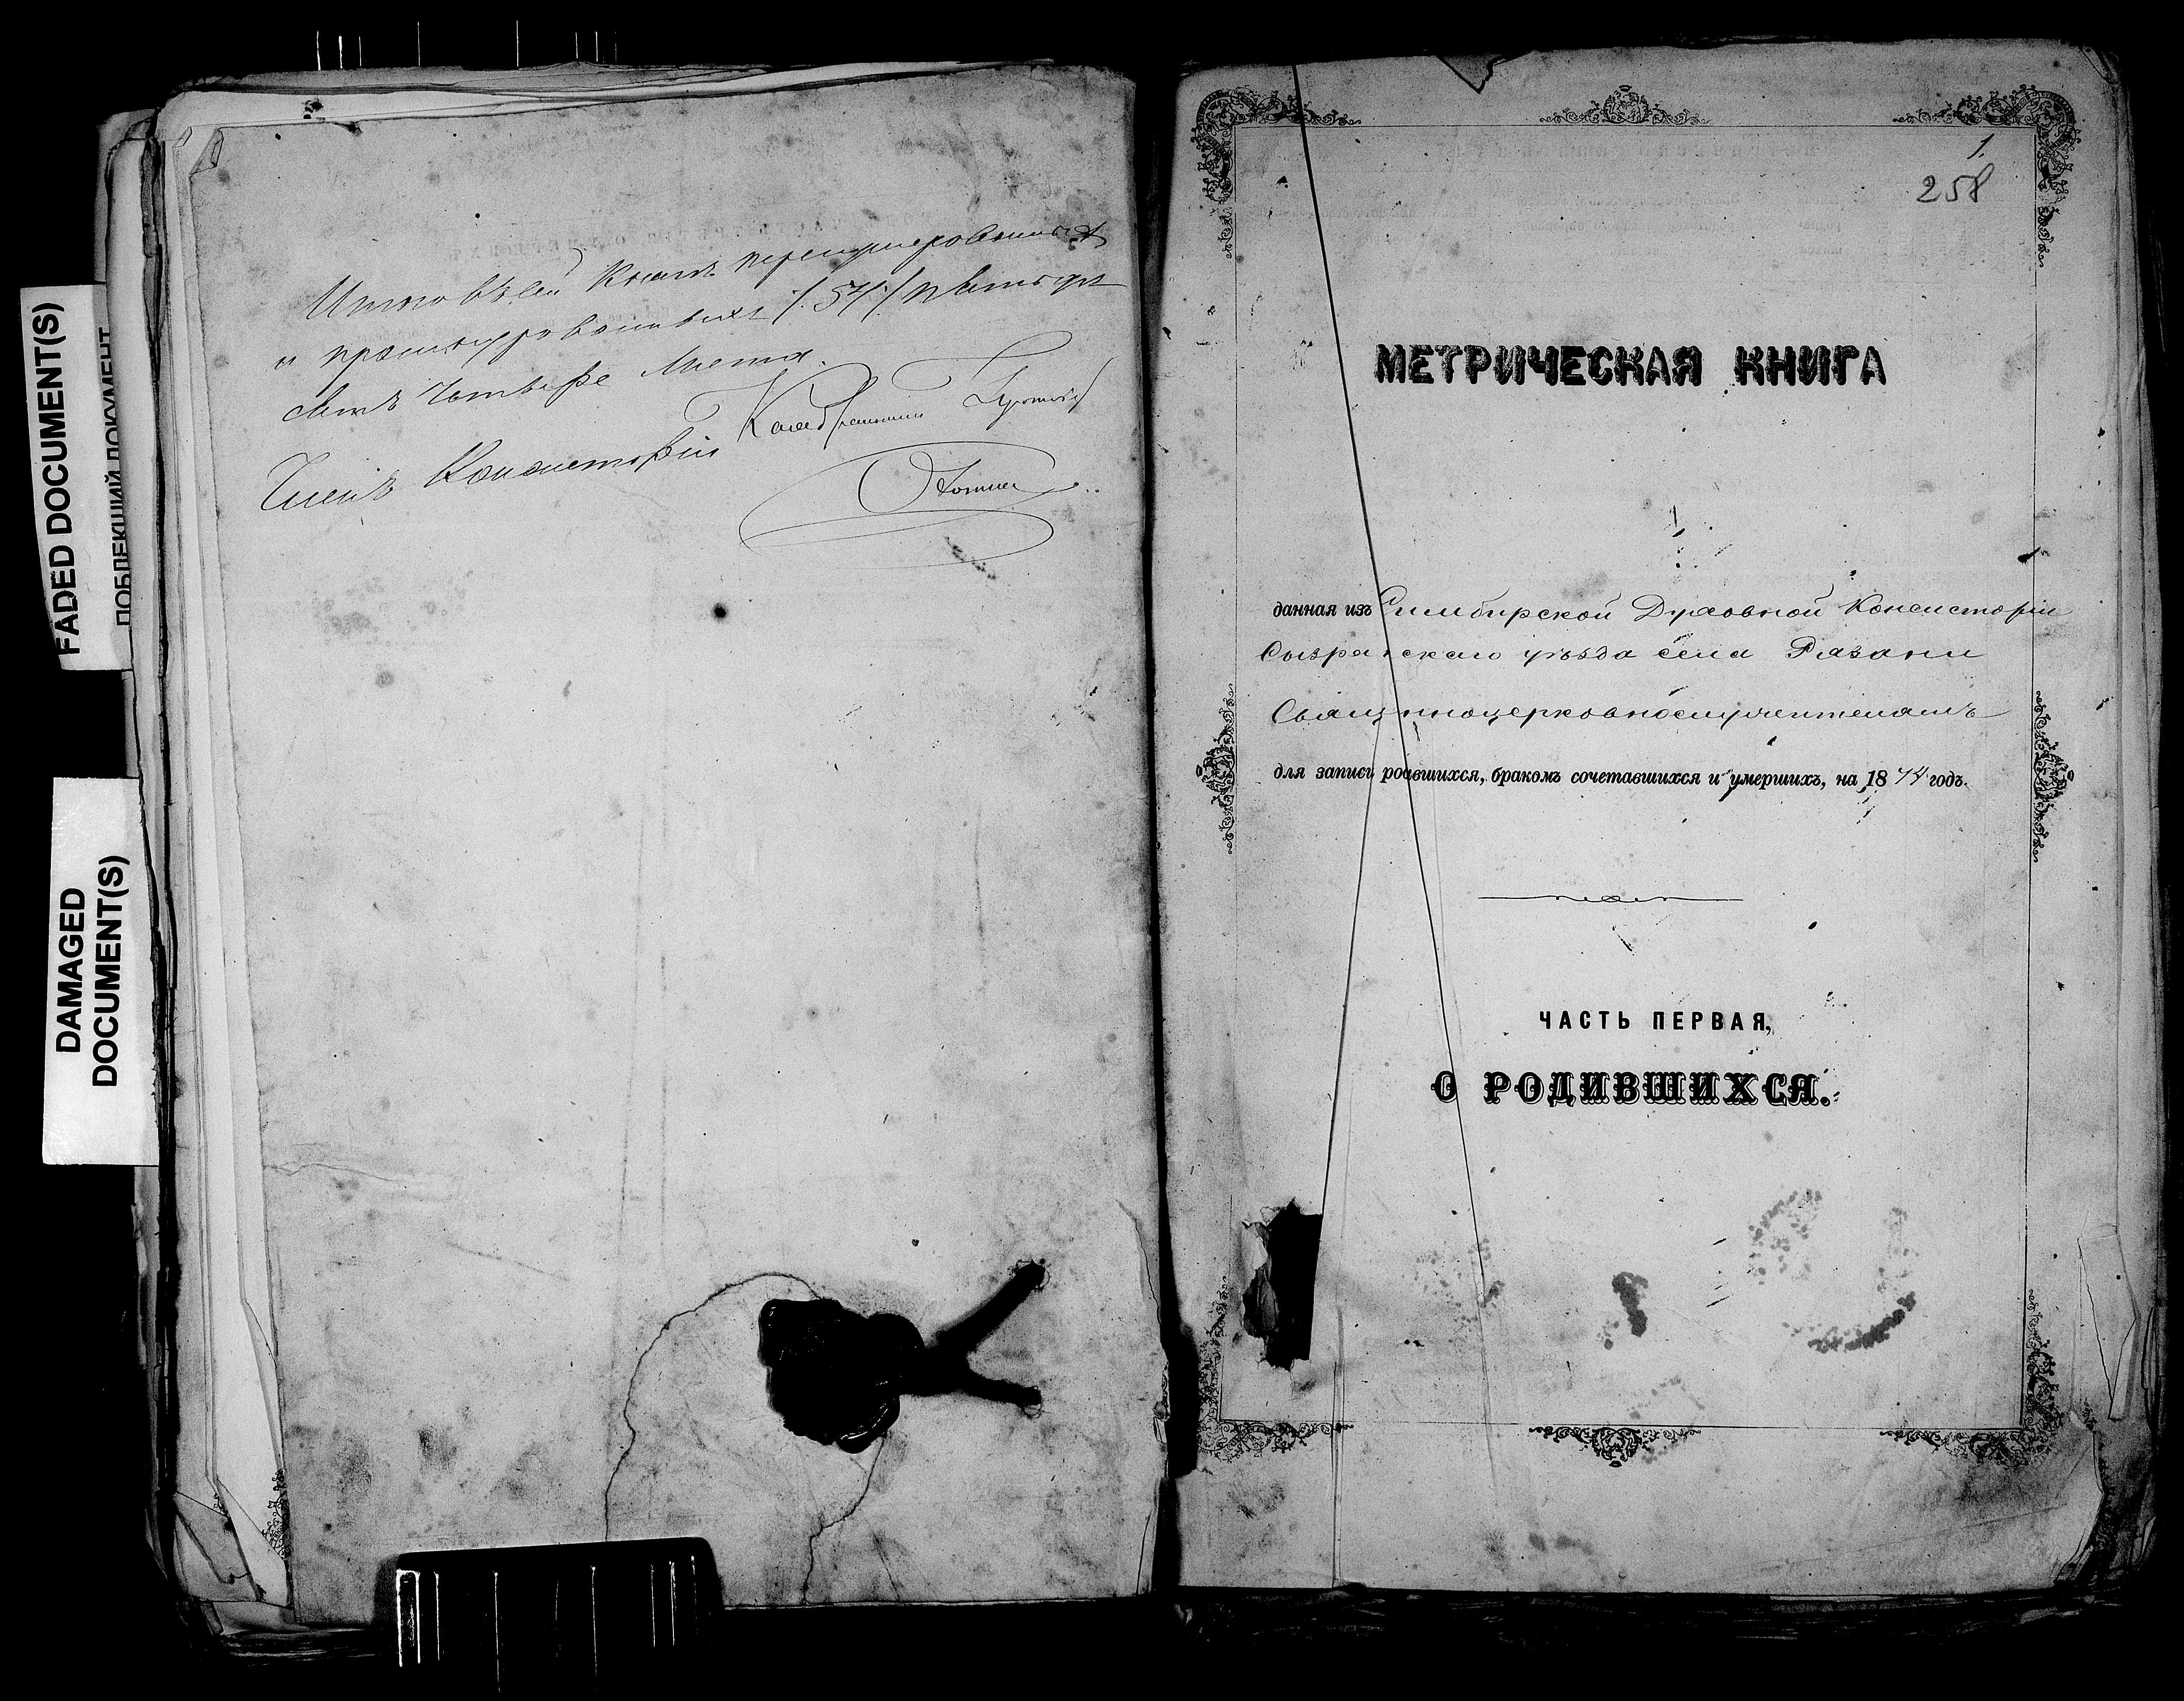 FADED DOCUMENT(S)
ПОБЛЕКШИЙ ДОКУМЕНТ
DAMAGED
DOCUMENT(S)
Итого въ сей книгѣ перенумерованныхъ
и прошнурованныхъ /54/ пятьде
сятъ четыре листа.
Членъ Консисторіи
1.
258
МЕТРИЧЕСКАЯ КНИГА
данная изъ Симбирской Духовной Консисторіи
Сызранскаго уѣзда села Рязани
Священноцерковнослужителямъ
для записи родившихся, бракомъ сочетавшихся и умершихъ, на 1874 годъ.
ЧАСТЬ ПЕРВАЯ,
О РОДИВШИХСЯ.